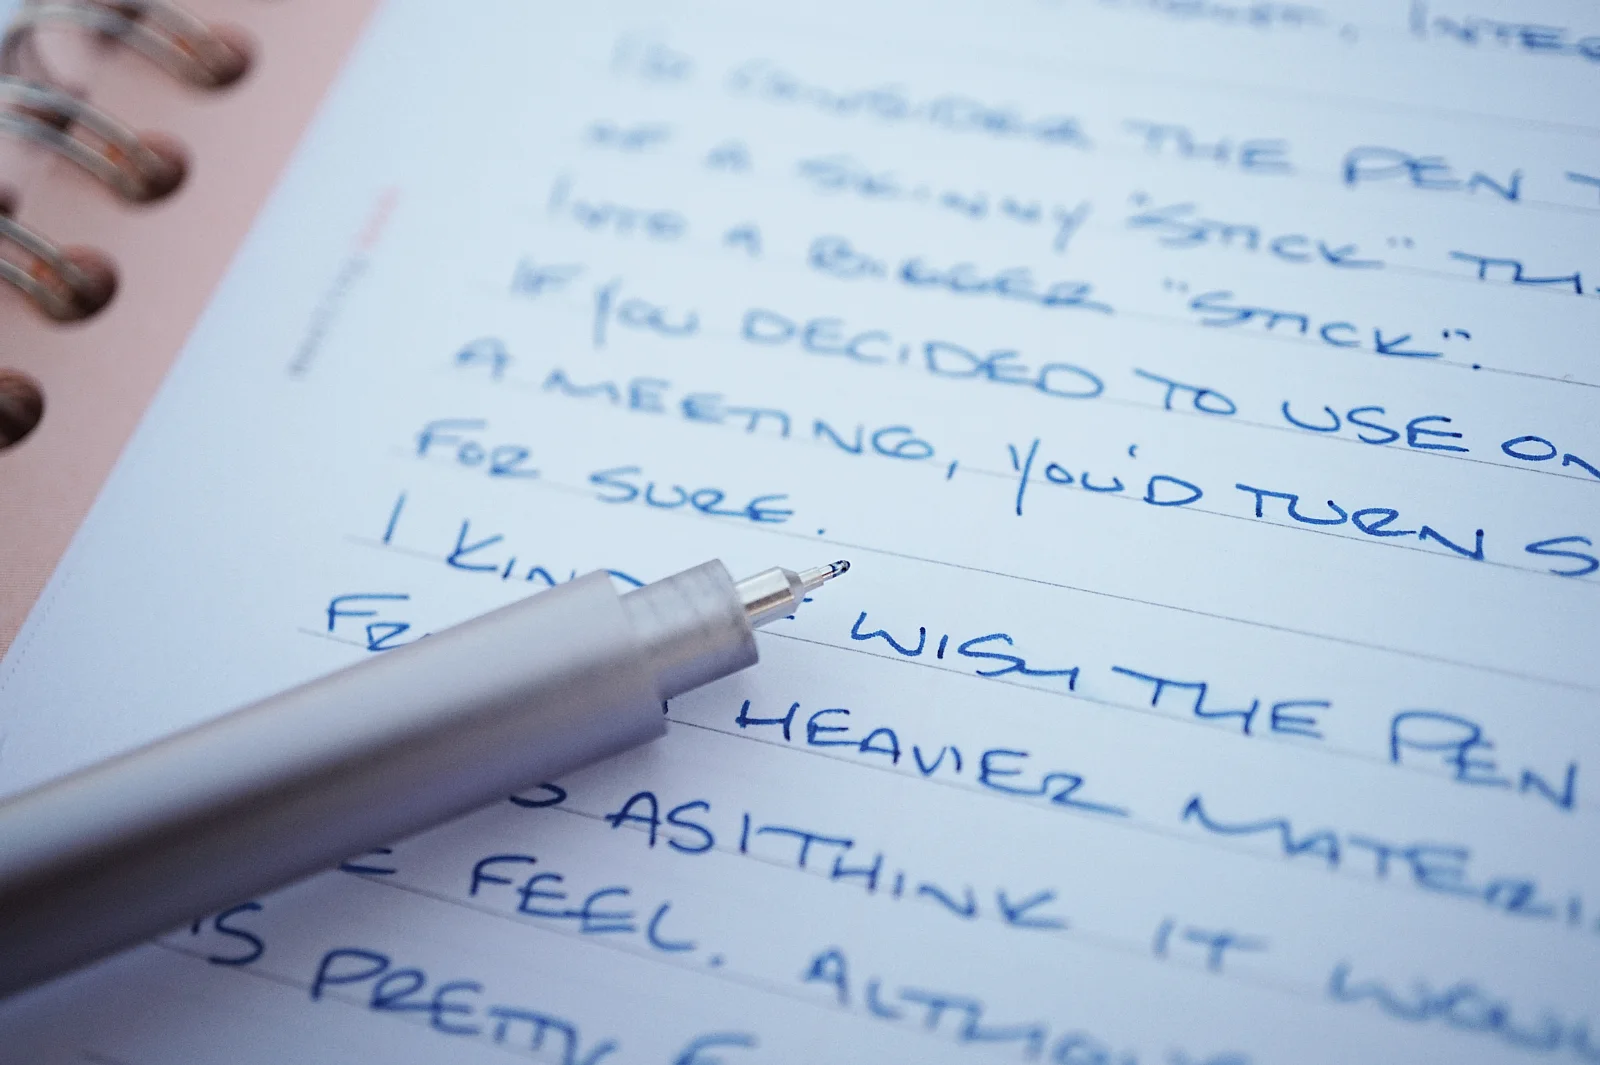 , INTEG
I'D CONSIDER THE PEN T
OF A SKINNY "STICK" TH
INTO A BIGGER "STICK".
IF YOU DECIDED TO USE ON
A MEETING, YOU'D TURN S
FOR SURE.
I KIND WISH THE PEN
FR HEAVIER MATERI
AS I THINK IT WOUL
FEEL. ALTHOU
IS PRETTY